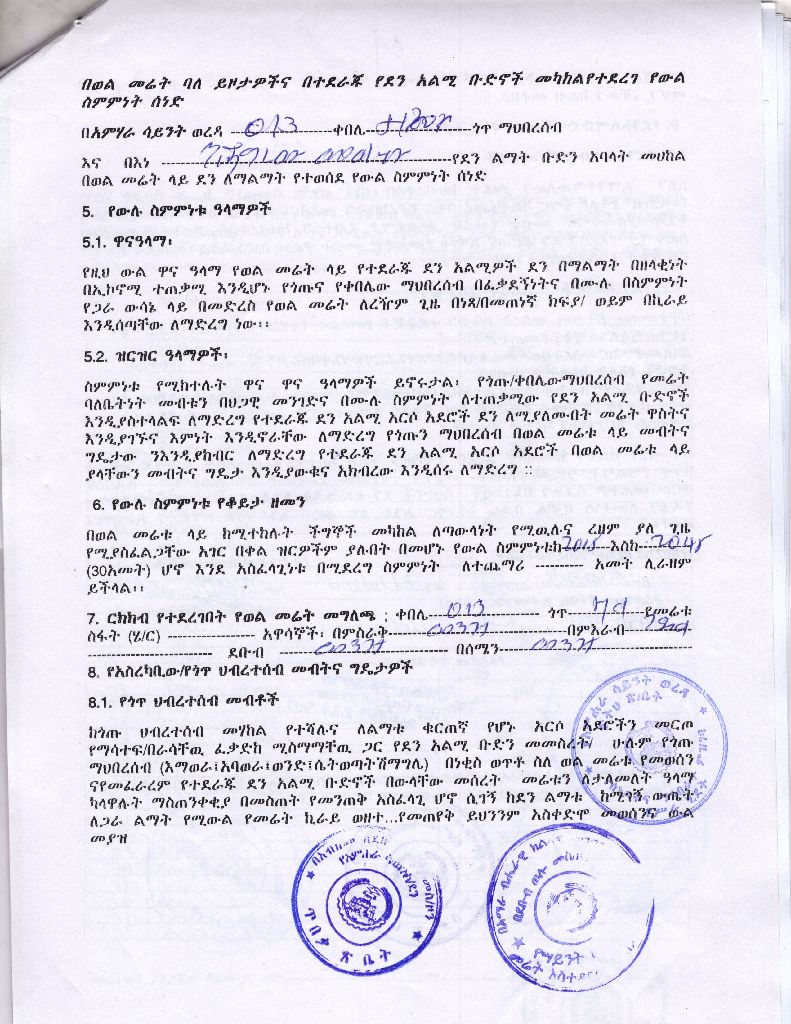 በወል መሬት ባለ ይዞታዎችና በተደራጁ የደን አልሚ ቡድኖች መካከልየተደረገ የውል
ስምምነት ሰነድ
በአምሃራ ሳይንት ወረዳ ---013---ቀበሌ------ጎጥ ማህበረሰብ
እና በእነ ------የደን ልማት ቡድን አባላት መሀከል
በወል መሬት ላይ ደን ለማልማት የተወሰደ የውል ስምምነት ሰነድ
5. የውሉ ስምምነቱ ዓላማዎች
5.1. ዋናዓላማ፡
የዚህ ውል ዋና ዓላማ የወል መሬት ላይ የተደራጁ ደን አልሚዎች ደን በማልማት በዘላቂነት
በኢኮኖሚ ተጠቃሚ እንዲሆኑ የጎጡና የቀበሌው ማህበረሰብ በፈቃደኝነትና በሙሉ በስምምነት
የጋራ ውሳኔ ላይ በመድረስ የወል መሬት ለረዥም ጊዜ በነጻ/በመጠነኛ ክፍያ/ ወይም በኪራይ
እንዲሰጣቸው ለማድረግ ነው፡፡
5.2. ዝርዝር ዓላማዎች፡
ስምምነቱ የሚከተሉት ዋና ዋና ዓላማዎች ይኖሩታል፡ የጎጡ/ቀበሌውማህበረሰብ የመሬት
ባለቤትነት መብቱን በህጋዊ መንገድና በሙሉ ስምምነት ለተጠቃሚው የደን አልሚ ቡድኖች
እንዲያስተላልፍ ለማድረግ የተደራጁ ደን አልሚ አርሶ አደሮች ደን ለሚያለሙበት መሬት ዋስትና
እንዲያገኙና እምነት እንዲኖራቸው ለማድረግ የጎጡን ማህበረሰብ በወል መሬቱ ላይ መብትና
ግዴታው ንእንዲያከብር ለማድረግ የተደራጁ ደን አልሚ አርሶ አደሮች በወል መሬቱ ላይ
ያላቸውን መብትና ግዴታ እንዲያውቁና አክብረው እንዲሰሩ ለማድረግ ::
6. የውሉ ስምምነቱ የቆይታ ዘመን
በወል መሬቱ ላይ ከሚተከሉት ችግኞች መካከል ለጣውላነት የሚዉሉና ረዘም ያለ ጊዜ
የሚያስፈልጋቸው አገር በቀል ዝርዎችም ያሉበት በመሆኑ የውል ስምምነቱከ-2015---እስከ---2045
(30አመት) ሆኖ እንደ አስፈላጊነቱ በሚደረግ ስምምነት ለተጨማሪ ---------- አመት ሊራዘም
ይችላል፡፡
7. ርክክብ የተደረገበት የወል መሬት መግለጫ ፡ ቀበሌ---013------ ጎጥ------የመሬቱ
ስፋት (ሄ/ር) ------------------ አዋሳኞች፡ በምስራቅ---መንገድ---በምእራብ------
------ ደቡብ ---መንገድ--- በሰሜን---መንገድ---
8. የአስረካቢው/የጎጥ ህብረተሰብ መብትና ግዴታዎች
8.1. የጎጥ ህብረተሰብ መብቶች
ከጎጡ ህብረተሰብ መሃከል የተሻሉና ለልማቱ ቁርጠኛ የሆኑ አርሶ አደሮችን መርጦ
የማሳተፍ/በራሳቸዉ ፈቃድከ ሚስማማቸዉ ጋር የደን አልሚ ቡድን መመስረት/ ሁሉም የጎጡ
ማህበረሰብ (እማወራ፤አባወራ፤ወንድ፤ሴትወጣትሽማግሌ) በነቂስ ወጥቶ ስለ ወል መሬቱ የመወሰን
ናየመፈራረም የተደራጁ ደን አልሚ ቡድኖች በውላቸው መሰረት መሬቱን ለታለመለት ዓላማ
ካላዋሉት ማስጠንቀቂያ በመስጠት የመንጠቅ አስፈላጊ ሆኖ ሲገኝ ከደን ልማቱ ከሚገኝ ውጤት
ለጋራ ልማት የሚውል የመሬት ኪራይ ወዘተ...የመጠየቅ ይህንንም አስቀድሞ መወሰንና ውል
መያዝ
ጥበቃ ጽ ቤት